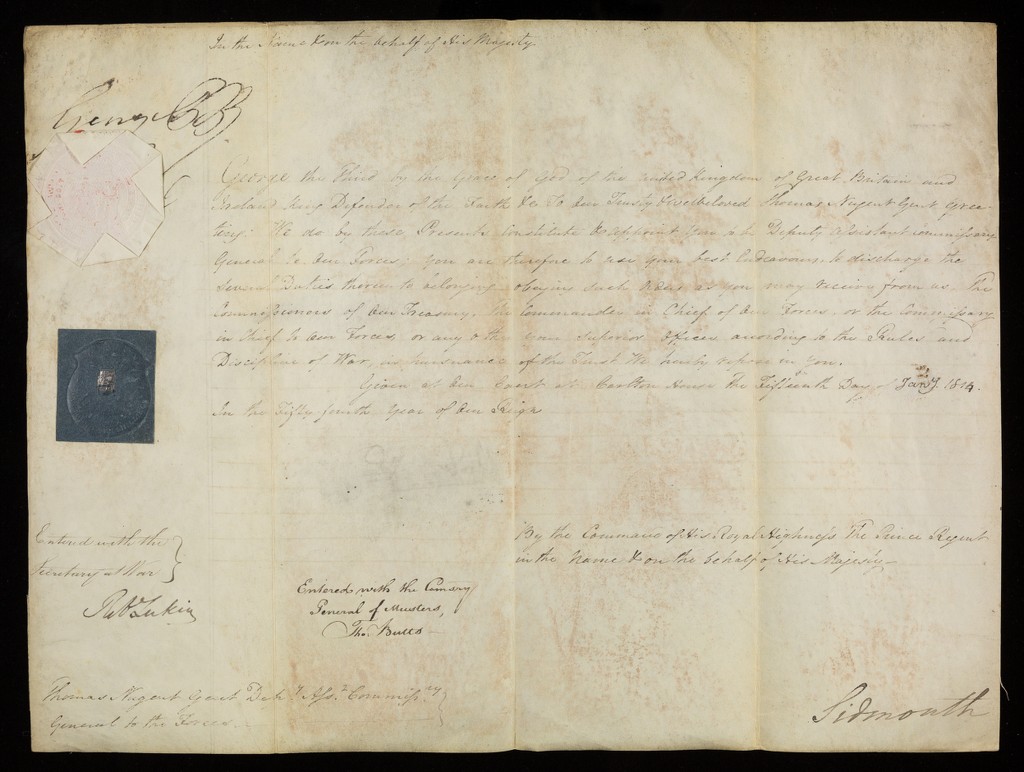 In the Name & on the behalf of His Majesty
George P R
George the Third by the Grace of God of the United Kingdom of Great Britain and
Ireland King Defender of the Faith &c To Our Trusty & Welbeloved Thomas Nugent Gent Gree-
ting: We do by these Presents Constitute & appoint You to be Deputy Assistant Commissary
General to Our Forces; You are therefore to use your best Endeavours to discharge the
several Duties thereunto belonging obeying such Orders as you may receive from us The
Commissioners of Our Treasury, The Commander in Chief of Our Forces, or the Commissary
in Chief to Our Forces or any other your superior Officer according to the Rules and
Discipline of War, in pursuance of the Trust We hereby repose in you.
Given at Our Court at Carlton House the Fifteenth Day of Jany. 1814.
In the Fifty fourth Year of Our Reign
By the Command of His Royal Highness The Prince Regent
in the Name & on the behalf of His Majesty
Entered with the
Secretary at War
Robt Lukin
Entered with the Comsary
General of Musters,
Thos. Butts
Thomas Nugent Gent Depy Asst Commissry
General to the Forces
Sidmouth